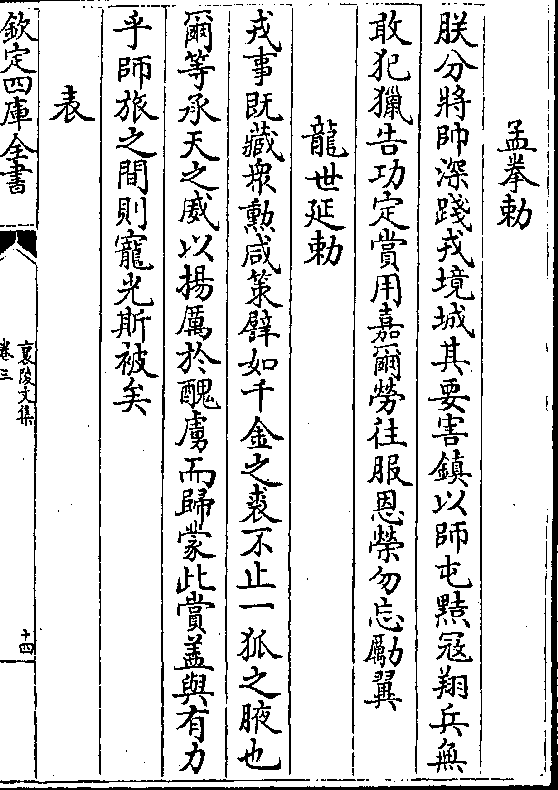 孟拳勅
朕分將帥深踐戎境城其要害鎮以師屯黠冦翔兵無
敢犯獵告功定賞用嘉爾勞往服恩榮勿忘勵翼
龍世延勅
戎事既蕆衆勲咸策譬如千金之裘不止一狐之腋也
爾等承天之威以揚厲於醜虜而歸蒙此賞蓋與有力
乎師旅之間則寵光斯被矣
表
欽定四庫全書
襄陵文集
卷三
十四